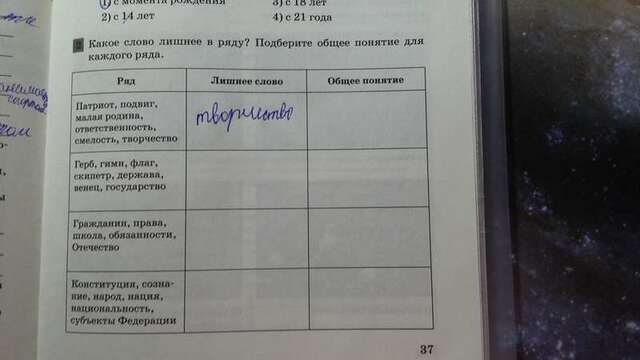 1) с момента рождения 3) с 18 лет
2) с 14 лет 4) с 21 года
2 Какое слово лишнее в ряду? Подберите общее понятие для
каждого ряда.
Ряд Лишнее слово Общее понятие
Патриот, подвиг,
малая родина,
ответственность,
смелость, творчество
творчество
Герб, гимн, флаг,
скипетр, держава,
венец, государство
Гражданин, права,
школа, обязанности,
Отечество
Конституция, созна-
ние, народ, нация,
национальность,
субъекты Федерации
37